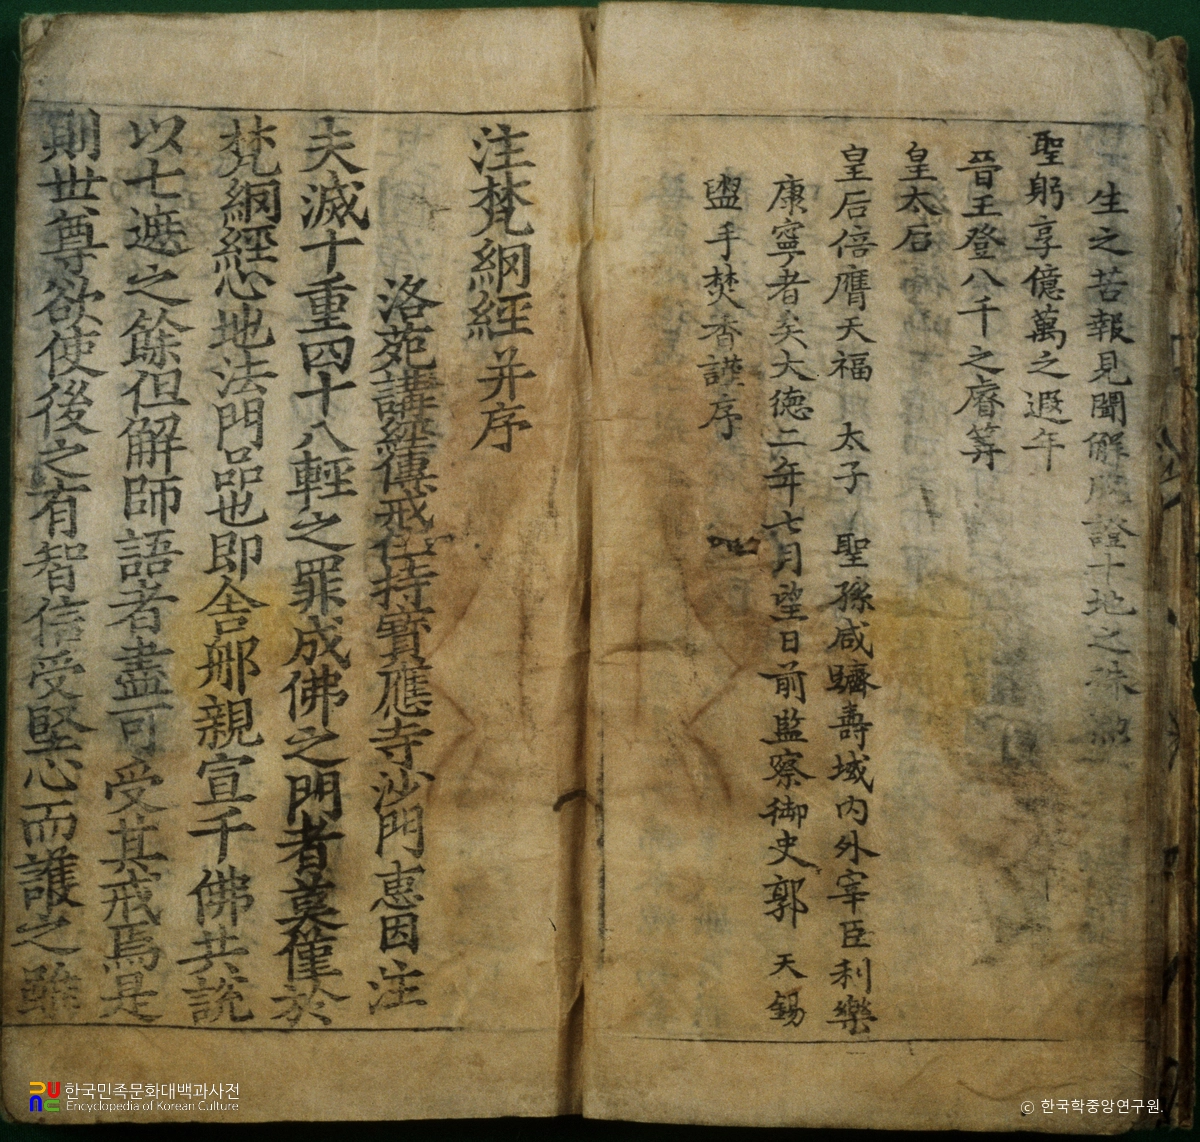 生之苦報見聞解脫證十地之殊
聖躬享億萬之遐年
晉王登八千之睿筭
皇太后
皇后倍膺天福 太子 聖孫咸躋壽域內外宰臣利樂
康寧者矣大德二年七月望日前監察御史郭 天錫
盥手焚香謹序
注梵網經并序
洛苑講經傳戒住持寶應寺沙門惠因注
夫滅十重四十八輕之罪成佛之門者莫僅於
梵網經心地法門品也即舍那親宣千佛共說
以七遮之餘但解師語者盡可受其戒焉是
則世尊欲使後之有智信受堅心而護之雖
한국민족문화대백과사전
Encyclopedia of Korean Culture
© 한국학중앙연구원.